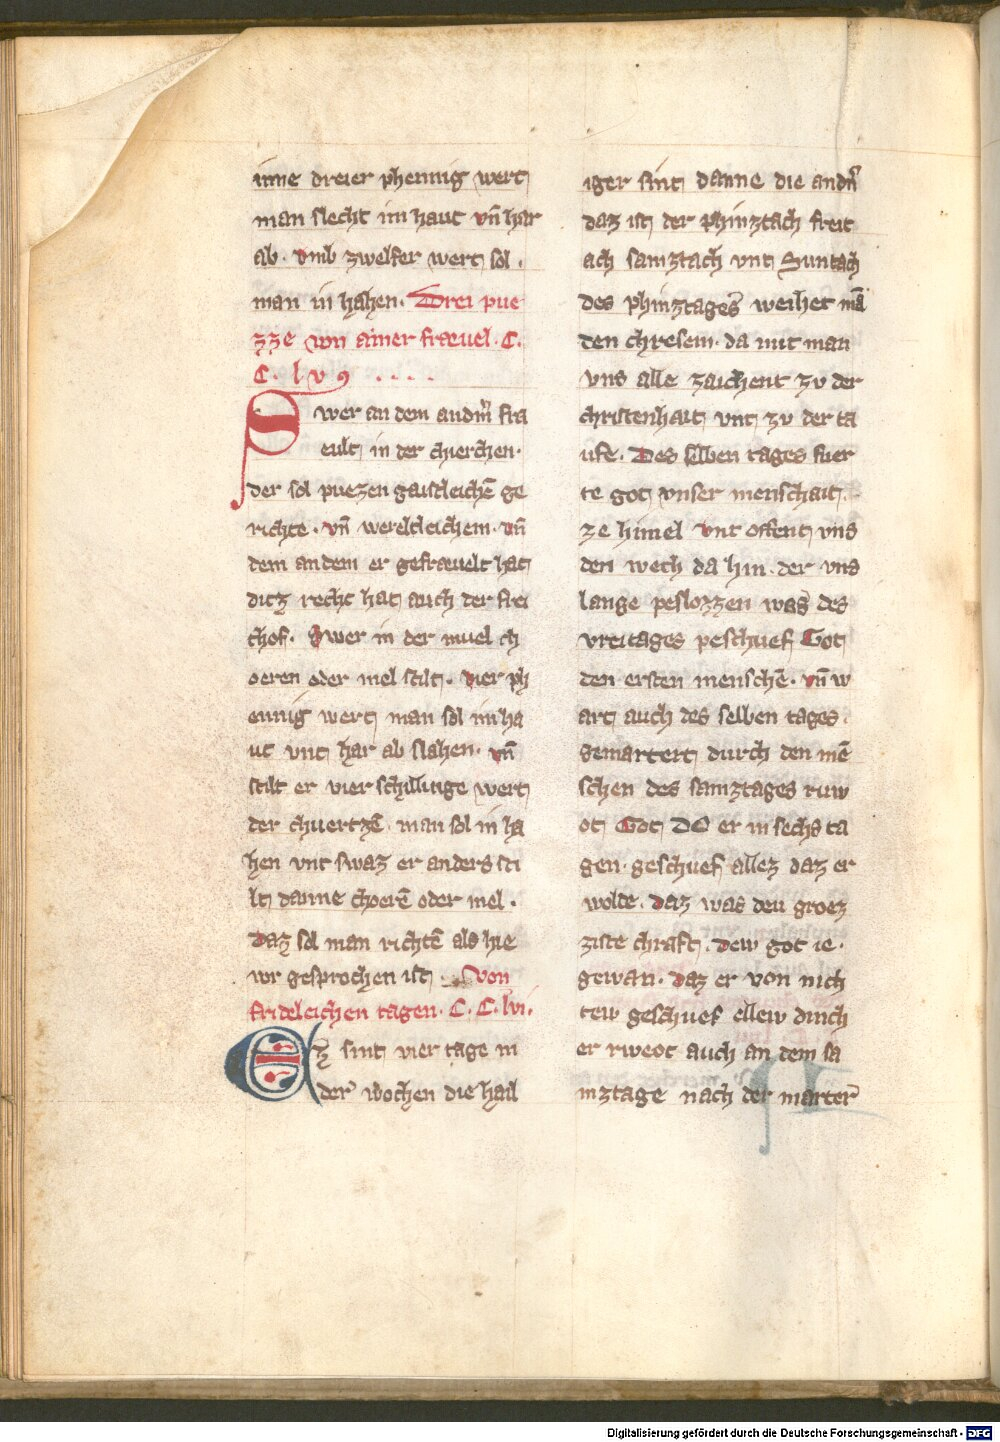 inne dreier phennig wert
man slecht im haut vn̄ har
ab. vmb zwelfer wert sol.
man in hahen. Drei pue
zze von ainer fraeuel. C.
C. l v 9 . . . .
Swer an dem andm̄ fra
eult in der chierchen.
der sol puezen gaistleichē ge
richte. vn̄ wereltleichem. vn̄
dem andem er gefraeuelt hat
ditz recht hat auch der frei
thof. Swer in der muel ch
oeren oder mel stilt. vier ph
ennig wert man sol im ha
ut vnt har ab slahen. vn̄
stilt er vier schillinge wert
der chuertzē. man sol in ha
hen vnt swaz er anders sti
lt danne choerē oder mel.
Daz sol man richtē als hie
vor gesprochen ist. Von
frideleichen tagen. C. C. lvi.
Ez sint vier tage in
der wochen die hail
iger sint danne die andn̄
daz ist der phinztach freit
ach samztach vnt Suntach
des phinztages weihet mā
den chresem. da mit man
vns alle zaichent zv der
christenhait vnt zv der ta
ufe. Des selben tages fuer
te got vnser menschait.
ze himel vnt offent vns
den wech da hin. der vns
lange peslozzen was des
vreitages peschuef Got
den ersten menschē. vn̄ w
art auch des selben tages.
gemartert durch den mē
schen des samztages ruw
ot Got DO er in sechs ta
gen. geschuef allez daz er
wolde. daz was deu groez
ziste chraft. dew got ie.
gewan. daz er von nich
tew geschuef ellew dinch
er rweot auch an dem sa
mztage nach der marter
Digitalisierung gefördert durch die Deutsche Forschungsgemeinschaft - DFG